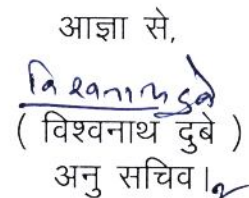 आज्ञा से,
विश्वनाथ दुबे
( विश्वनाथ दुबे )
अनु सचिव।